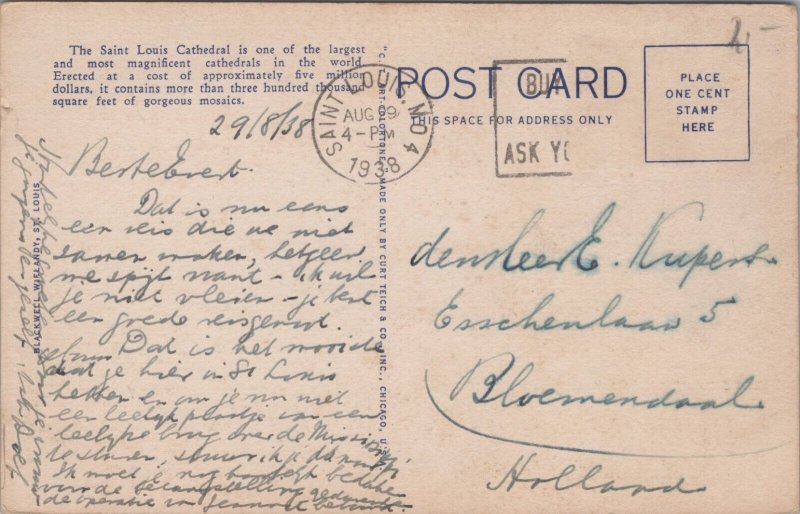 The Saint Louis Cathedral is one of the largest
and most magnificent cathedrals in the world.
Erected at a cost of approximately five million
dollars, it contains more than three hundred thousand
square feet of gorgeous mosaics.
29/8/38
Beste Evert.
Dat is nu eens
een reis die we niet
samen maken, hetgeen
me spijt want - ik wil
je niet vleien - je bent
een goede reisgenoot.
Dat is het mooiste
dat je hier in St Louis
hebben en om je nu niet
een leelijk plaatje van een
leelijke brug over de Mississippi
te sturen, stuur ik je
Ik moet je nog hartelijk
voor de belangstelling
de operatie van
BLACKWELL WIELANDY, ST. LOUIS
"C. T. ART-COLORTONE" MADE ONLY BY CURT TEICH & CO., INC., CHICAGO, U.S.A.
POST CARD
THIS SPACE FOR ADDRESS ONLY
SAINT LOUIS, MO 4
AUG 29
4-PM
1938
BUY
ASK YO
PLACE
ONE CENT
STAMP
HERE
2,-
den Heer E. Kupers
Esschenlaan 5
Bloemendaal
Holland